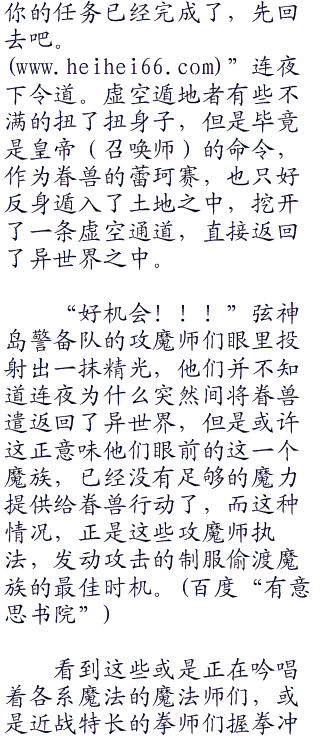 你的任务已经完成了，先回
去吧。
(www.heihei66.com)”连夜
下令道。虚空遁地者有些不
满的扭了扭身子，但是毕竟
是皇帝（召唤师）的命令，
作为眷兽的蕾珂赛，也只好
反身遁入了土地之中，挖开
了一条虚空通道，直接返回
了异世界之中。
“好机会！！！”弦神
岛警备队的攻魔师们眼里投
射出一抹精光，他们并不知
道连夜为什么突然间将眷兽
遣返回了异世界，但是或许
这正意味他们眼前的这一个
魔族，已经没有足够的魔力
提供给眷兽行动了，而这种
情况，正是这些攻魔师执
法，发动攻击的制服偷渡魔
族的最佳时机。(百度“有意
思书院”)
看到这些或是正在吟唱
着各系魔法的魔法师们，或
是近战特长的拳师们握拳冲